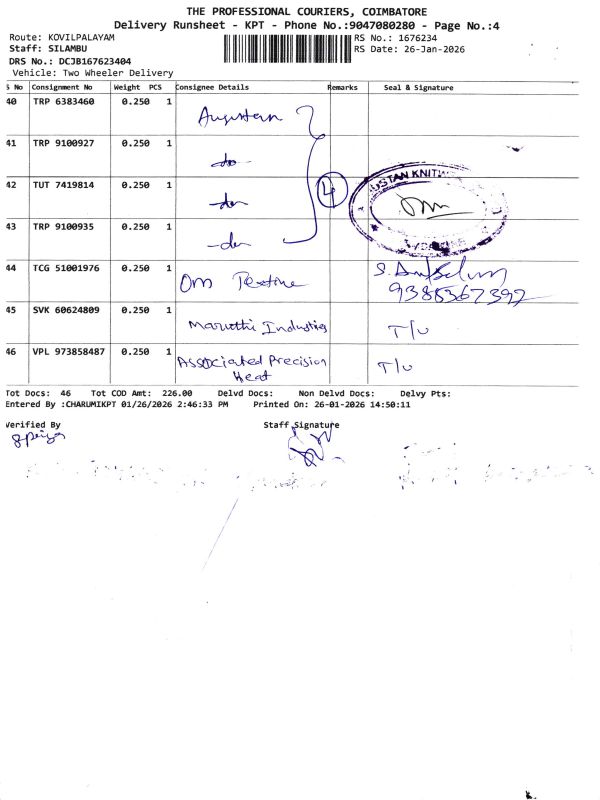 THE PROFESSIONAL COURIERS, COIMBATORE
Delivery Runsheet - KPT - Phone No.:9047080280 - Page No.:4
Route: KOVILPALAYAM RS No.: 1676234
Staff: SILAMBU RS Date: 26-Jan-2026
DRS No.: DCJB167623404
Vehicle: Two Wheeler Delivery
S No Consignment No Weight PCS Consignee Details Remarks Seal & Signature
40 TRP 6383460 0.250 1
41 TRP 9100927 0.250 1 -do-
42 TUT 7419814 0.250 1 -do- 4
43 TRP 9100935 0.250 1 -do-
44 TCG 51001976 0.250 1 Om Textine
9385367392
45 SVK 60624809 0.250 1 Maruthi Industries T/U
46 VPL 973858487 0.250 1 Associated Precision T/U
Heat
Tot Docs: 46 Tot COD Amt: 226.00 Delvd Docs: Non Delvd Docs: Delvy Pts:
Entered By :CHARUMIKPT 01/26/2026 2:46:33 PM Printed On: 26-01-2026 14:50:11
Verified By Staff Signature